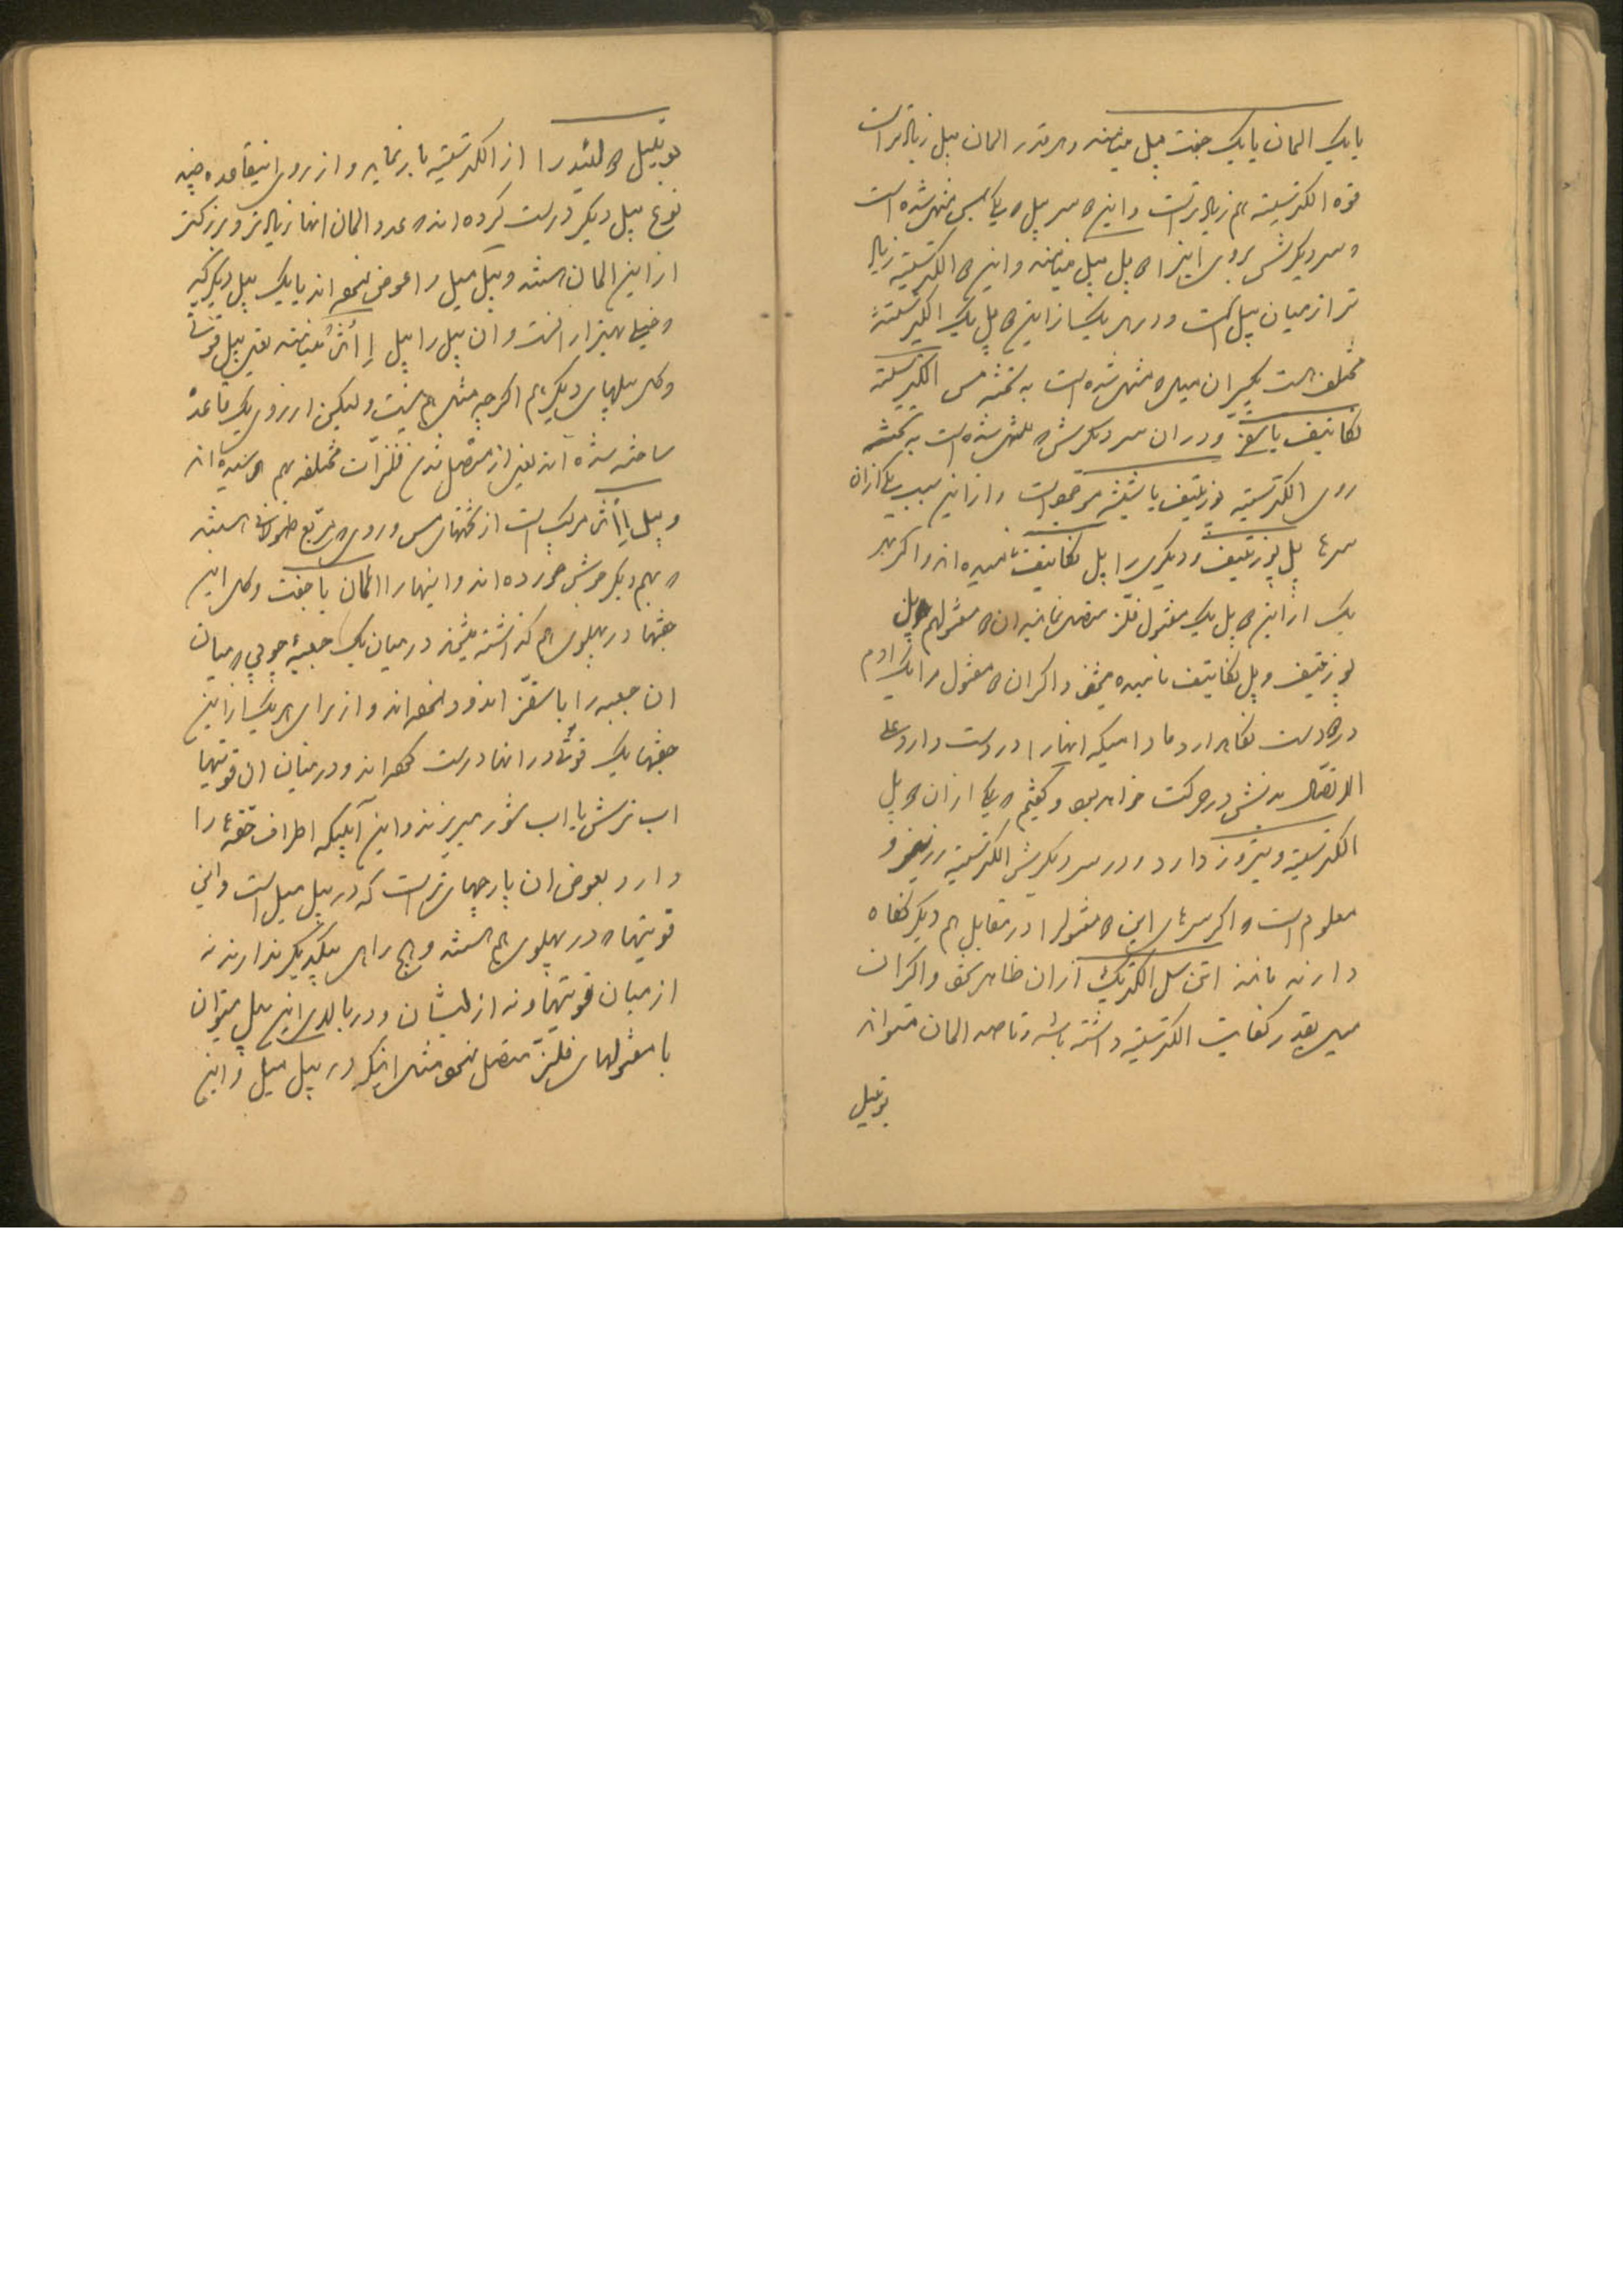 یا یک المان یا یک جفت پیل مینامند و هرقدر المان پیل زیادتر است
قوه الکتریسیته هم زیادتر است و این دو سر پیل که یکی بمس منتهی شده است
و سر دیگرش بروی اینرا دو پل پیل مینامند و این دو الکتریسیته زیاد
تر از میان پیل است و در هر یک از این دو پل یک الکتریسیته
مختلف است یکسر ان میل که منتهی شده است به تخته مس الکتریسیته
نکاتیف یا سقزی و در ان سر دیگرش که منتهی شده است به تخته
روی الکتریسیته پوزیتیف یا شیشه موجود است و از این سبب یکی از ان
سرها پل پوزیتیف و دیگری را پل نکاتیف نامیده اند و اگر بهر
یک از این دو پل یک مفتول فلز متصل نمایند ان دو مفتول هم پل
پوزیتیف و پل نکاتیف نامیده میشود و اگر ان دو مفتول را یک ادم
در دو دست نگاهدارد مادامیکه اینها را در دست دارد علی
الاتصال بدنش در حرکت خواهد بود و گفتیم که یکی از ان دو پل
الکتریسیته ویتروز دارد و در سر دیگرش الکتریسیته رزینوز و
معلوم است که اگر سرهای این دو مفتول را در مقابل هم دیگر نگاه
دارند مانند اتن سل الکتریک از ان ظاهر شود و اگر ان
میل بقدر کفایت الکتریسیته داشته باشد تا صد المان میتواند
بوتیل
بوتیل دو لئید را از الکتریسیته بار نماید و از روی اینقاعده چند
نوع پیل دیگر درست کرده اند که عدد المان انها زیادتر و بزرکتر
از این المان هستند و پیل میل را عوض نموده اند با یک پیل دیگر که
و خیلی بهتر از انست و ان پیل را پیل اِ اُنژُ مینامند یعنی پیل قوتی
و کل پیلهای دیگر هم اگرچه مثل هم نیست ولیکن از روی یک قاعده
ساخته شده اند یعنی از متصل شدن فلزات مختلفه بهم رسیده اند
و پیل اِ اُنژ مرکب است از تختهای مس و روی که مربع طولانی هستند
که بهم دیگر جوش خورده اند و اینها را المان یا جفت و کل این
جفتها در پهلوی هم گذاشته میشوند در میان یک جعبهٔ چوبی که میان
ان جعبه را با سقز اندود نموده اند و از برای هر یک از این
جفتها یک قوتی در انها درست کرده اند و در میان ان قوتیها
اب ترش یا اب شور میریزند و این آبیکه اطراف جفتها را
دارد بعوض ان پارچهای تر است که در پیل میل است و این
قوتیها که در پهلوی هم هستند و هیچ راهی بیکدیگر ندارند نه
از میان قوتیها و نه از لبشان و در بالای این پیل میتوان
با مفتولهای فلز متصل نمود مثل اینکه در پیل میل و این